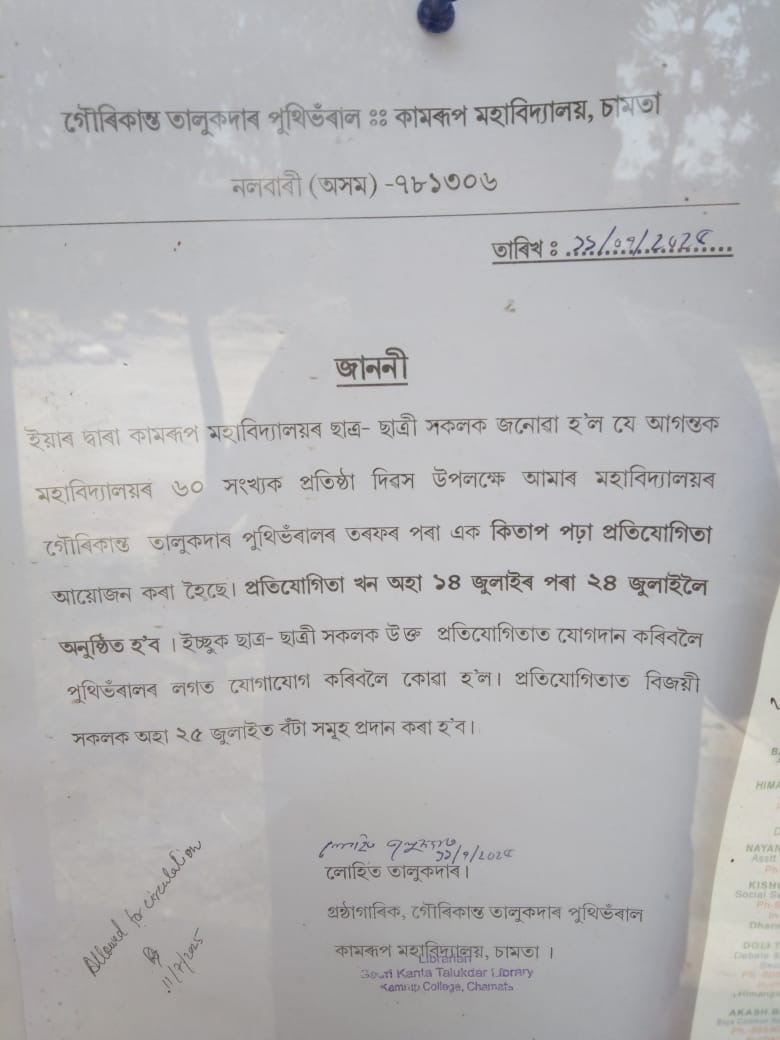 গৌৰিকান্ত তালুকদাৰ পুথিভঁৰাল ঃঃ কামৰূপ মহাবিদ্যালয়, চামতা
নলবাৰী (অসম) -৭৮১৩০৬
তাৰিখ ঃ ১১/০৭/২০২৫
জাননী
ইয়াৰ দ্বাৰা কামৰূপ মহাবিদ্যালয়ৰ ছাত্ৰ- ছাত্ৰী সকলক জনোৱা হ'ল যে আগন্তুক
মহাবিদ্যালয়ৰ ৬০ সংখ্যক প্ৰতিষ্ঠা দিৱস উপলক্ষে আমাৰ মহাবিদ্যালয়ৰ
গৌৰিকান্ত তালুকদাৰ পুথিভঁৰালৰ তৰফৰ পৰা এক কিতাপ পঢ়া প্ৰতিযোগিতা
আয়োজন কৰা হৈছে। প্ৰতিযোগিতা খন অহা ১৪ জুলাইৰ পৰা ২৪ জুলাইলৈ
অনুষ্ঠিত হ'ব । ইচ্ছুক ছাত্ৰ- ছাত্ৰী সকলক উক্ত প্ৰতিযোগিতাত যোগদান কৰিবলৈ
পুথিভঁৰালৰ লগত যোগাযোগ কৰিবলৈ কোৱা হ'ল। প্ৰতিযোগিতাত বিজয়ী
সকলক অহা ২৫ জুলাইত বঁটা সমূহ প্ৰদান কৰা হ'ব।
১১/৭/২০২৫
লোহিত তালুকদাৰ।
গ্ৰন্থাগাৰিক, গৌৰিকান্ত তালুকদাৰ পুথিভঁৰাল
কামৰূপ মহাবিদ্যালয়, চামতা ।
Librarian
Gouri Kanta Talukdar Library
Kamrup College, Chamata
Allowed for circulation
11/7/2025
HIMA
NAYAN
Asstt
Ph-
KISH
Social Se
Ph-8
Dhan
Debate &
AKASH B